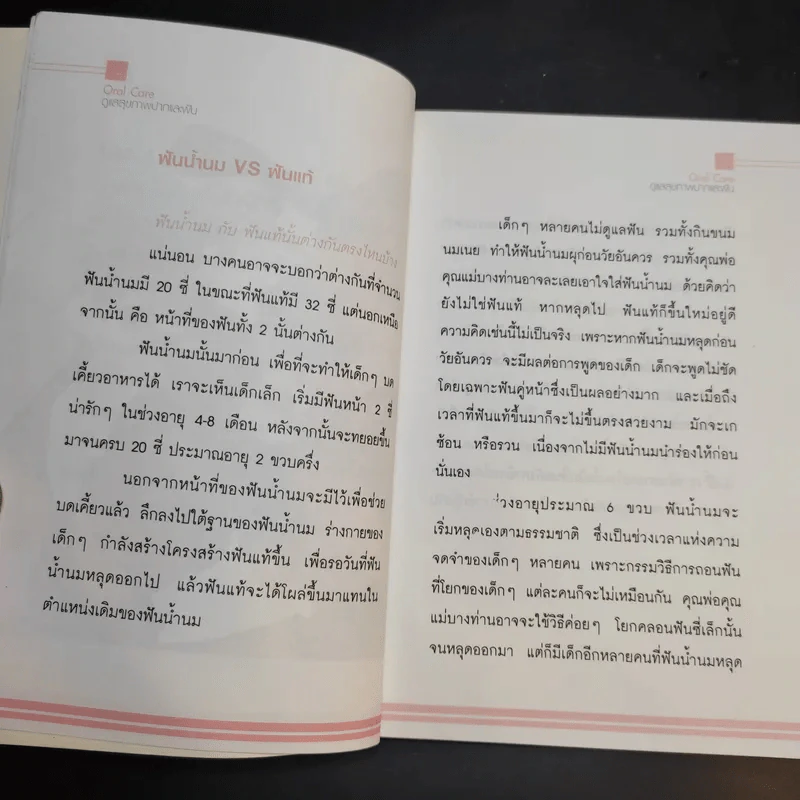 Oral Care
ดูแลสุขภาพปากและฟัน
ฟันน้ำนม VS ฟันแท้
ฟันน้ำนม กับ ฟันแท้นั้นต่างกันตรงไหนบ้าง
แน่นอน บางคนอาจจะบอกว่าต่างกันที่จำนวน
ฟันน้ำนมมี 20 ซี่ ในขณะที่ฟันแท้มี 32 ซี่ แต่นอกเหนือ
จากนั้น คือ หน้าที่ของฟันทั้ง 2 นั้นต่างกัน
ฟันน้ำนมนั้นมาก่อน เพื่อที่จะทำให้เด็กๆ บด
เคี้ยวอาหารได้ เราจะเห็นเด็กเล็ก เริ่มมีฟันหน้า 2 ซี่
น่ารักๆ ในช่วงอายุ 4-8 เดือน หลังจากนั้นจะทยอยขึ้น
มาจนครบ 20 ซี่ ประมาณอายุ 2 ขวบครึ่ง
นอกจากหน้าที่ของฟันน้ำนมจะมีไว้เพื่อช่วย
บดเคี้ยวแล้ว ลึกลงไปใต้ฐานของฟันน้ำนม ร่างกายของ
เด็กๆ กำลังสร้างโครงสร้างฟันแท้ขึ้น เพื่อรอวันที่ฟัน
น้ำนมหลุดออกไป แล้วฟันแท้จะได้โผล่ขึ้นมาแทนใน
ตำแหน่งเดิมของฟันน้ำนม
Oral Care
ดูแลสุขภาพปากและฟัน
เด็กๆ หลายคนไม่ดูแลฟัน รวมทั้งกินขนม
นมเนย ทำให้ฟันน้ำนมผุก่อนวัยอันควร รวมทั้งคุณพ่อ
คุณแม่บางท่านอาจละเลยเอาใจใส่ฟันน้ำนม ด้วยคิดว่า
ยังไม่ใช่ฟันแท้ หากหลุดไป ฟันแท้ก็ขึ้นใหม่อยู่ดี
ความคิดเช่นนี้ไม่เป็นจริง เพราะหากฟันน้ำนมหลุดก่อน
วัยอันควร จะมีผลต่อการพูดของเด็ก เด็กจะพูดไม่ชัด
โดยเฉพาะฟันคู่หน้าซึ่งเป็นผลอย่างมาก และเมื่อถึง
เวลาที่ฟันแท้ขึ้นมาก็จะไม่ขึ้นตรงสวยงาม มักจะเก
ซ้อน หรือรวน เนื่องจากไม่มีฟันน้ำนมนำร่องให้ก่อน
นั่นเอง
ช่วงอายุประมาณ 6 ขวบ ฟันน้ำนมจะ
เริ่มหลุดเองตามธรรมชาติ ซึ่งเป็นช่วงเวลาแห่งความ
จดจำของเด็กๆ หลายคน เพราะกรรมวิธีการถอนฟัน
ที่โยกของเด็กๆ แต่ละคนก็จะไม่เหมือนกัน คุณพ่อคุณ
แม่บางท่านอาจจะใช้วิธีค่อยๆ โยกคลอนฟันซี่เล็กนั้น
จนหลุดออกมา แต่ก็มีเด็กอีกหลายคนที่ฟันน้ำนมหลุด